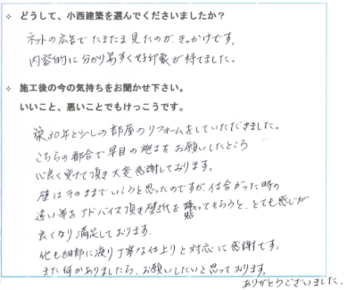 ✧ どうして、小西建築を選んでくださいましたか？
ネットの広告でたまたま見たのがきっかけです。
内容的に分かり易すくせる印象が持てました。
✧ 施工後の今の気持ちをお聞かせ下さい。
いいこと、悪いことでもけっこうです。
築30年と少しの部屋のリフォームをしていただきました。
こちらの都合で早目の施工をお願いしたところ
心良く受けて頂き大変感謝しております。
壁はそのままでいこうと思ったのですが、仕合がった時の
違い等をアドバイス頂き壁紙を貼ってもらうと、とても感じが
良くなり満足しております。
他も細部に渡り丁寧な仕上りと対応に感謝です。
また何かありましたら、お願いしたいと思っております。
ありがとうございました。